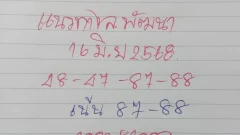 แนวทางพัฒนา
16 มิ.ย 2568
48-47-87-88
เน้น 87-88